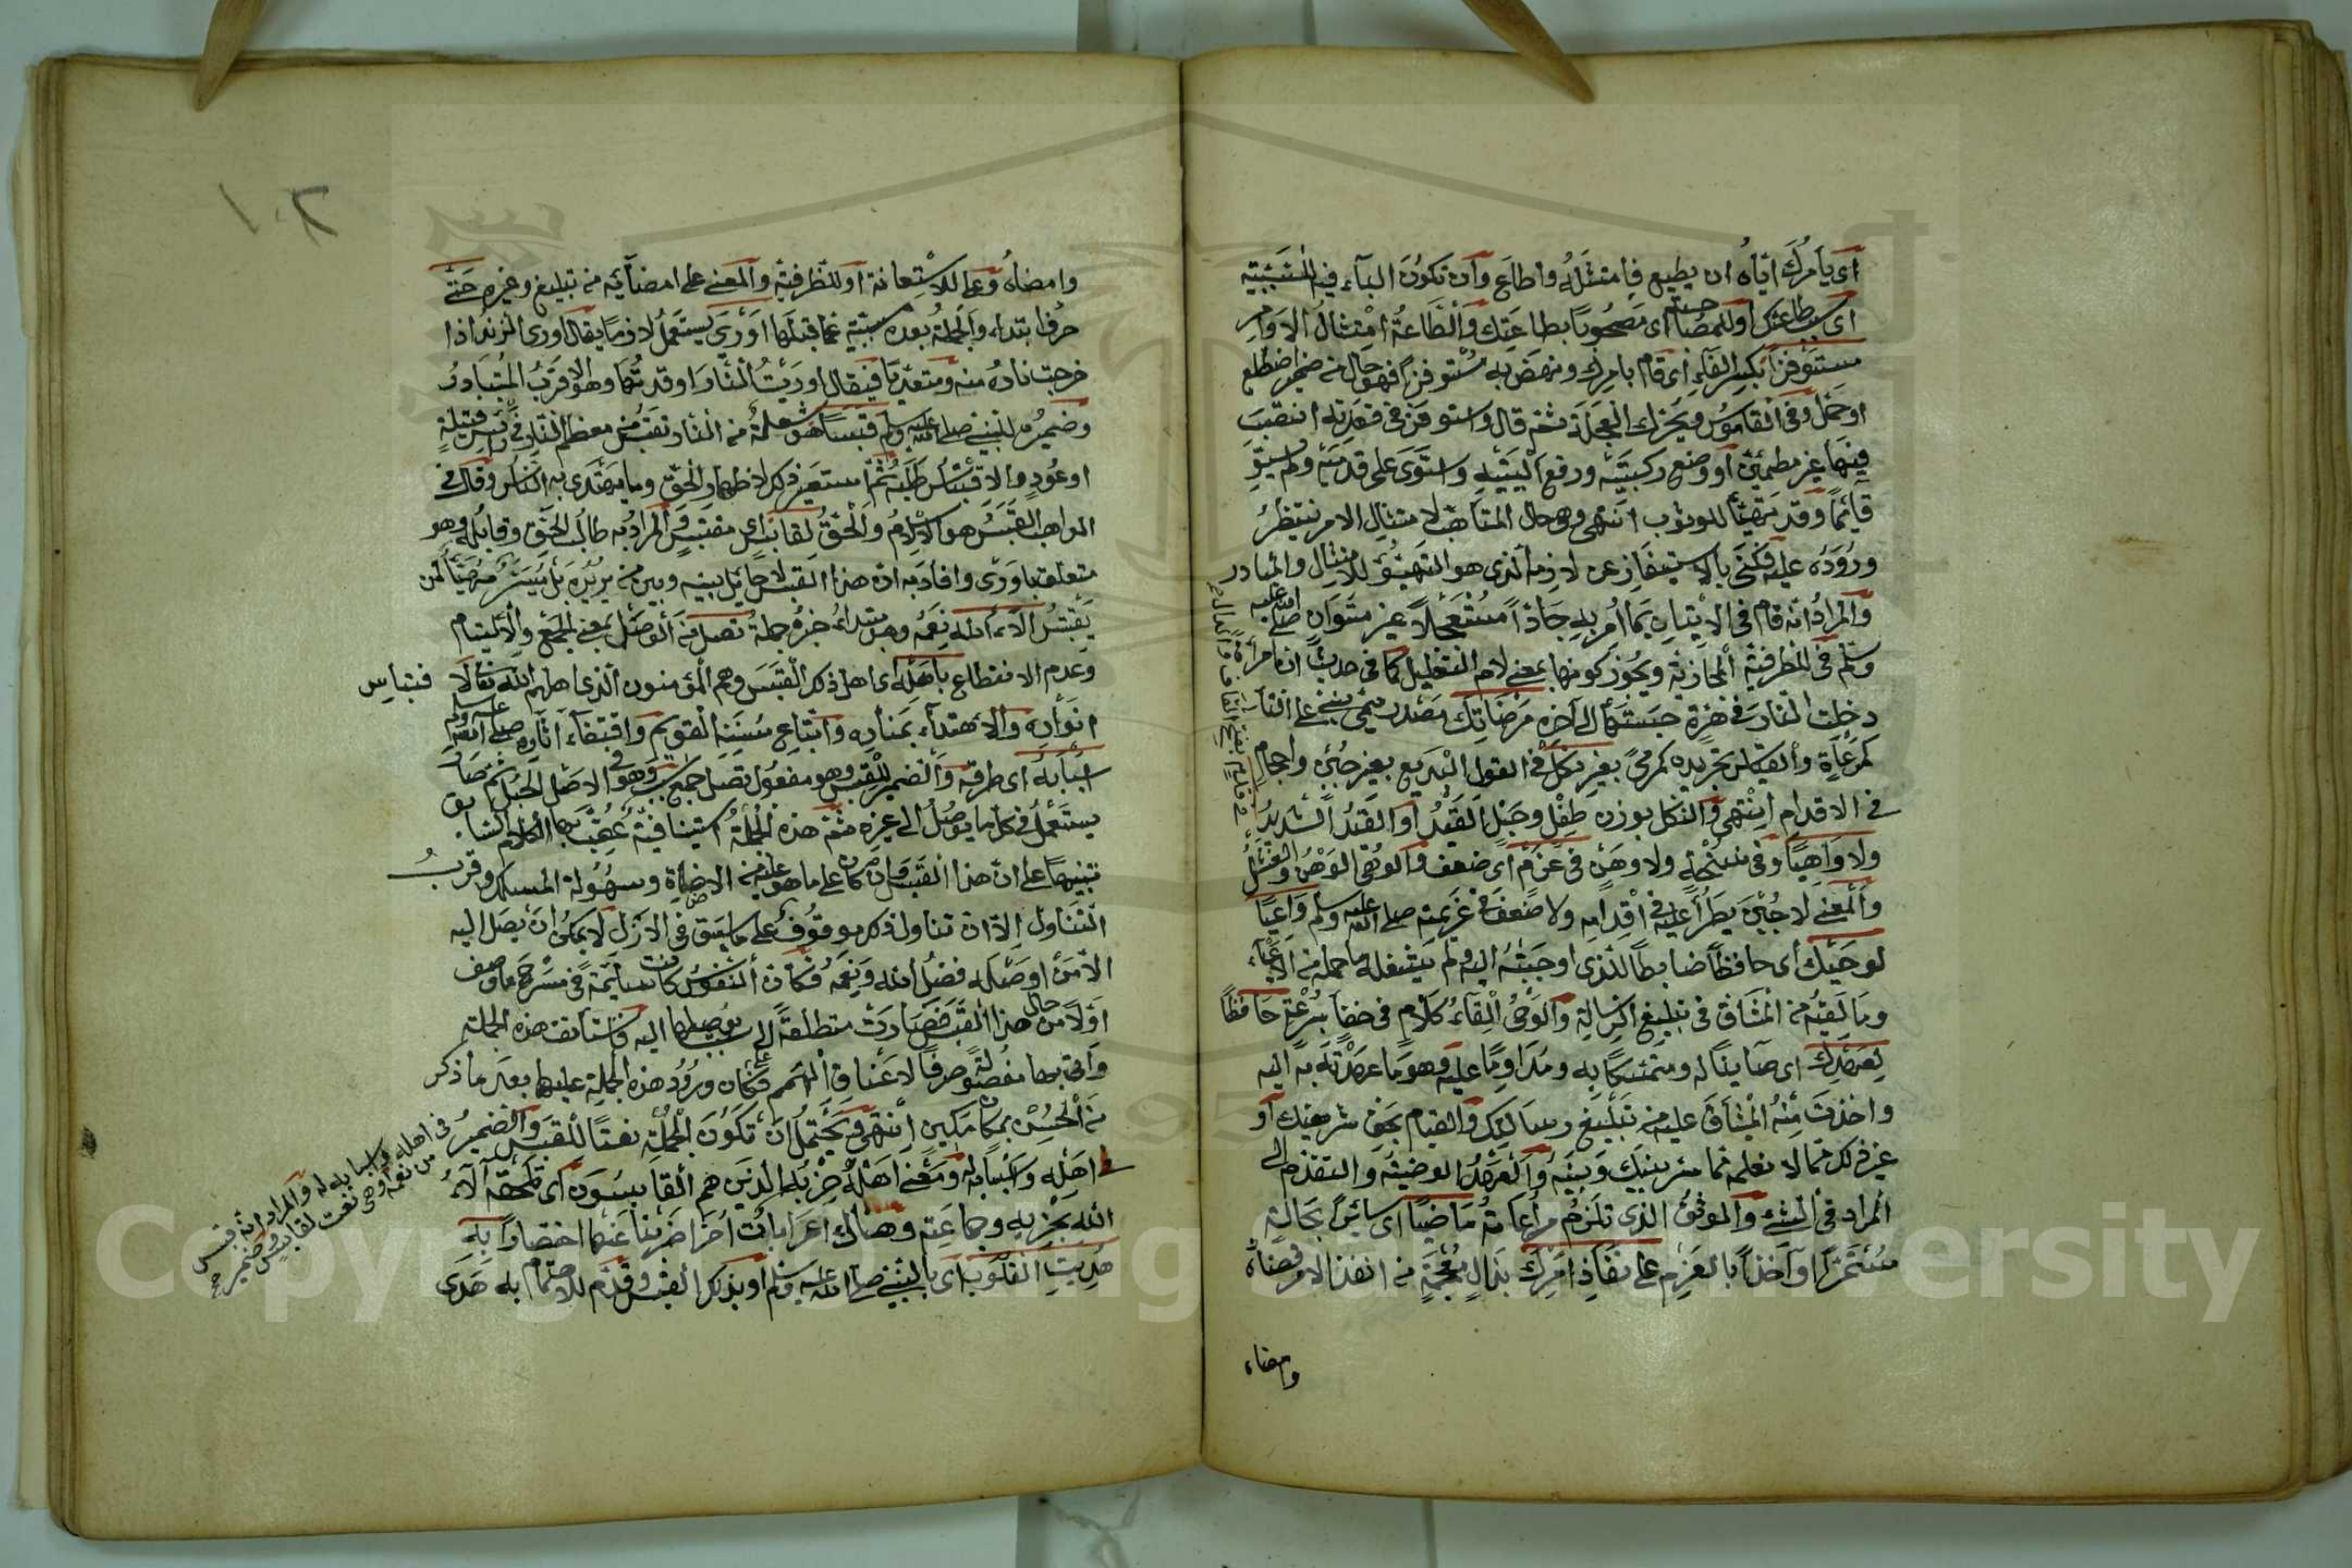 اى يأمرك اياه ان يطيع فامتثله واطاع وان تكون الباء فيه للسببية
اى بسبب طاعتك او للمصاحبة اى مصحوبا بطاعتك والطاعة امتثال الاوامر
مستوفزا بكسر الفاء اى قام بامرك ونهض به مستوفزا فهو حال من ضمير اضطلع
او حمل وفى القاموس ويحرك العجلة ثم قال واستوفز فى قعدته انتصب
فيها غير مطمئن او وضع ركبتيه ورفع اليتيه واستوى على قدميه ولم يستو
قائما وقد تهيأ للوثوب انتهى وهو حال المتأهب لامتثال الامر ينتظر
وروده عليه فكنى بالاستيفاز عن لازمه الذى هو التهيؤ للامتثال والمبادرة
والمراد انه قام فى الاتيان بما امر به جادا مستعجلا غير متوان صلى الله عليه
وسلم فى الظرفية المجازية ويجوز كونها بمعنى لام التعليل كما فى حديث ان امرأة
دخلت النار فى هرة حبستها الى آخره مرضاتك مصدر ميمى بنى على التاء
كمرعاة والقياس تجريده كمرمى بغير نكل فى القول البديع بغير جبن واحجام
فى الاقدام انتهى والنكل بوزن طفل وجبل القيد او القيد الشديد
ولا واهيا وفى نسخة ولا وهن فى عزم اى ضعف والوهى الوهن والفشل
والمعنى لا جبن يطرأ عليه فى اقدامه ولا ضعف فى عزيمته صلى الله عليه وسلم واعيا
لوحيك اى حافظا ضابطا للذى اوحيته اليه ولم يشغله ما حمله من الاعباء
وما لقيه من المشاق فى تبليغ الرسالة والوحى القاء كلام فى خفاء بسرعة حافظا
لعهدك اى صائنا له ومتمسكا به ومداوما عليه وهو ما عهدته به اليه
واخذت منه الميثاق عليه من تبليغ رسالتك والقيام بحق شريعتك او
غير ذلك مما لا نعلمه مما سر بينك وبينه والعهد الوصية والتقدم الى
المراد فى الشئ والموثق الذى تلزم مراعاته ماضيا اى سائرا بحالته
مستمرا او آخذا بالعزم على نفاذ امرك بذال معجمة من انفذ الامر قضاه
وامضاه
وامضاه وعلى للاستعانة او للظرفية والمعنى على امضائه من تبليغ وغيره حتى
حرف ابتداء والجملة بعده مسببة عما قبلها اورى يستعمل لازما يقال اورى الزند اذا
خرجت ناره منه ومتعديا فيقال اوريت النار اوقدتها وهو الاقرب المتبادر
وضميره للنبى صلى الله عليه وسلم قبسا هو شعلة من النار تقتبس من معظم النار فى رأس فتيلة
او عود والاقتباس طلبه ثم استعير ذلك لاظهار الحق وما يهتدى به الناس وقال فى
المواهب القبس هو الاسلام والحق لقابس اى مقتبس والمراد به طالب الحق وقابله وهو
متعلق باورى وافاد به ان هذا القبس لا حائل بينه وبين من يريده بل ميسر مهيأ لمن
يقتبس الاء الله نعمه وهى مبتدأ خبره جملة تصل من الوصل بمعنى الجمع والالتيام
وعدم الانقطاع باهله اى اهل ذلك القبس وهم المؤمنون الذى اهلهم الله تعالى لاقتباس
انواره والاهتداء بمناره واتباع سننه القويم واقتفاء آثاره صلى الله عليه وسلم
اسبابه اى طرقه والضمير للقبس وهو مفعول تصل جمع سبب وهو فى الاصل الحبل ثم صار
يستعمل فى كل ما يوصل الى غيره ثم هذه الجملة استينافية عقب بها الكلام السابق
تنبيها على ان هذا القبس وان كان على ما هو عليه من الاضاءة وسهولة المسلك وقرب
التناول الا ان تناول ذلك موقوف على ما سبق فى الازل لا يمكن ان يصل اليه
الا من اوصله له فضل الله ونعمه فكان النفوس كانت سائمة فى مسرح ما وصف
اولا من حال هذا القبس فصارت متطلعة الى سبب يوصلها اليه فاستأنف هذه الجملة
واتى بها مفصولة صرفا لاعناق الهمم فكان ورود هذه الجملة عليها بعد ما ذكر
من الحسن بمكان مكين انتهى ويحتمل ان تكون الجملة نعتا للقبس والضمير
فى اهله واسبابه له ومعنى اهله حزبه الذين هم القابسون اى تلحقه آلاء
الله بحزبه وجماعته وهناك اعرابات اخر اضربنا عنها اختصارا به
هديت القلوب اى بالنبى صلى الله عليه وسلم او بذلك القبس وقدم للاهتمام به هدى